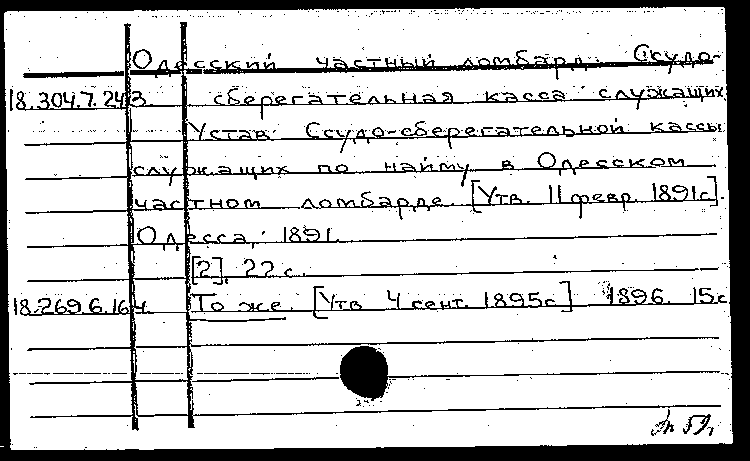 Одесский частный ломбард. Ссудо-
18.304.7.243 сберегательная касса служащих
Устав Ссудо-сберегательной кассы
служащих по найму в Одесском
частном ломбарде. [Утв. 11 февр. 1891г].
Одесса, 1891.
[2], 22 с.
18.269.6.164. То же. [Утв. 4 сент. 1895г.] 1896. 15с